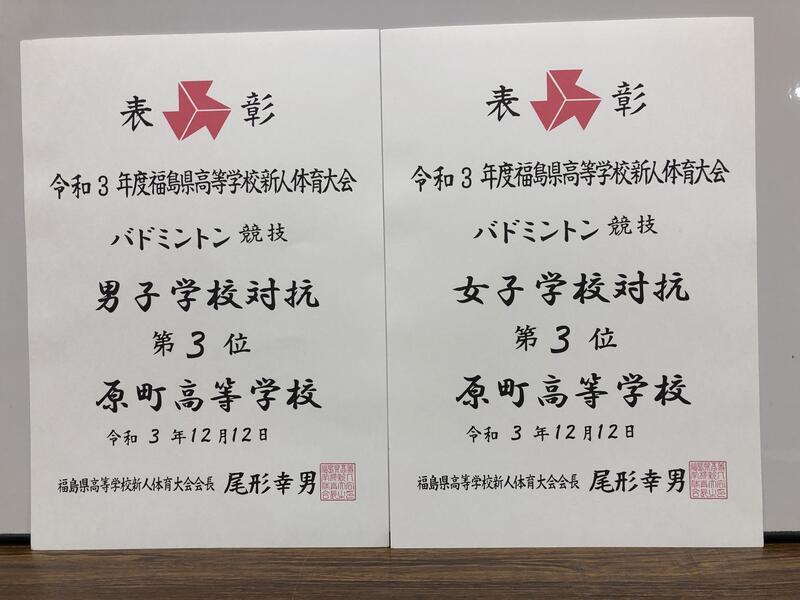 表彰
令和3年度福島県高等学校新人体育大会
バドミントン競技
男子学校対抗
第3位
原町高等学校
令和3年12月12日
福島県高等学校新人体育大会会長 尾形幸男
表彰
令和3年度福島県高等学校新人体育大会
バドミントン競技
女子学校対抗
第3位
原町高等学校
令和3年12月12日
福島県高等学校新人体育大会会長 尾形幸男